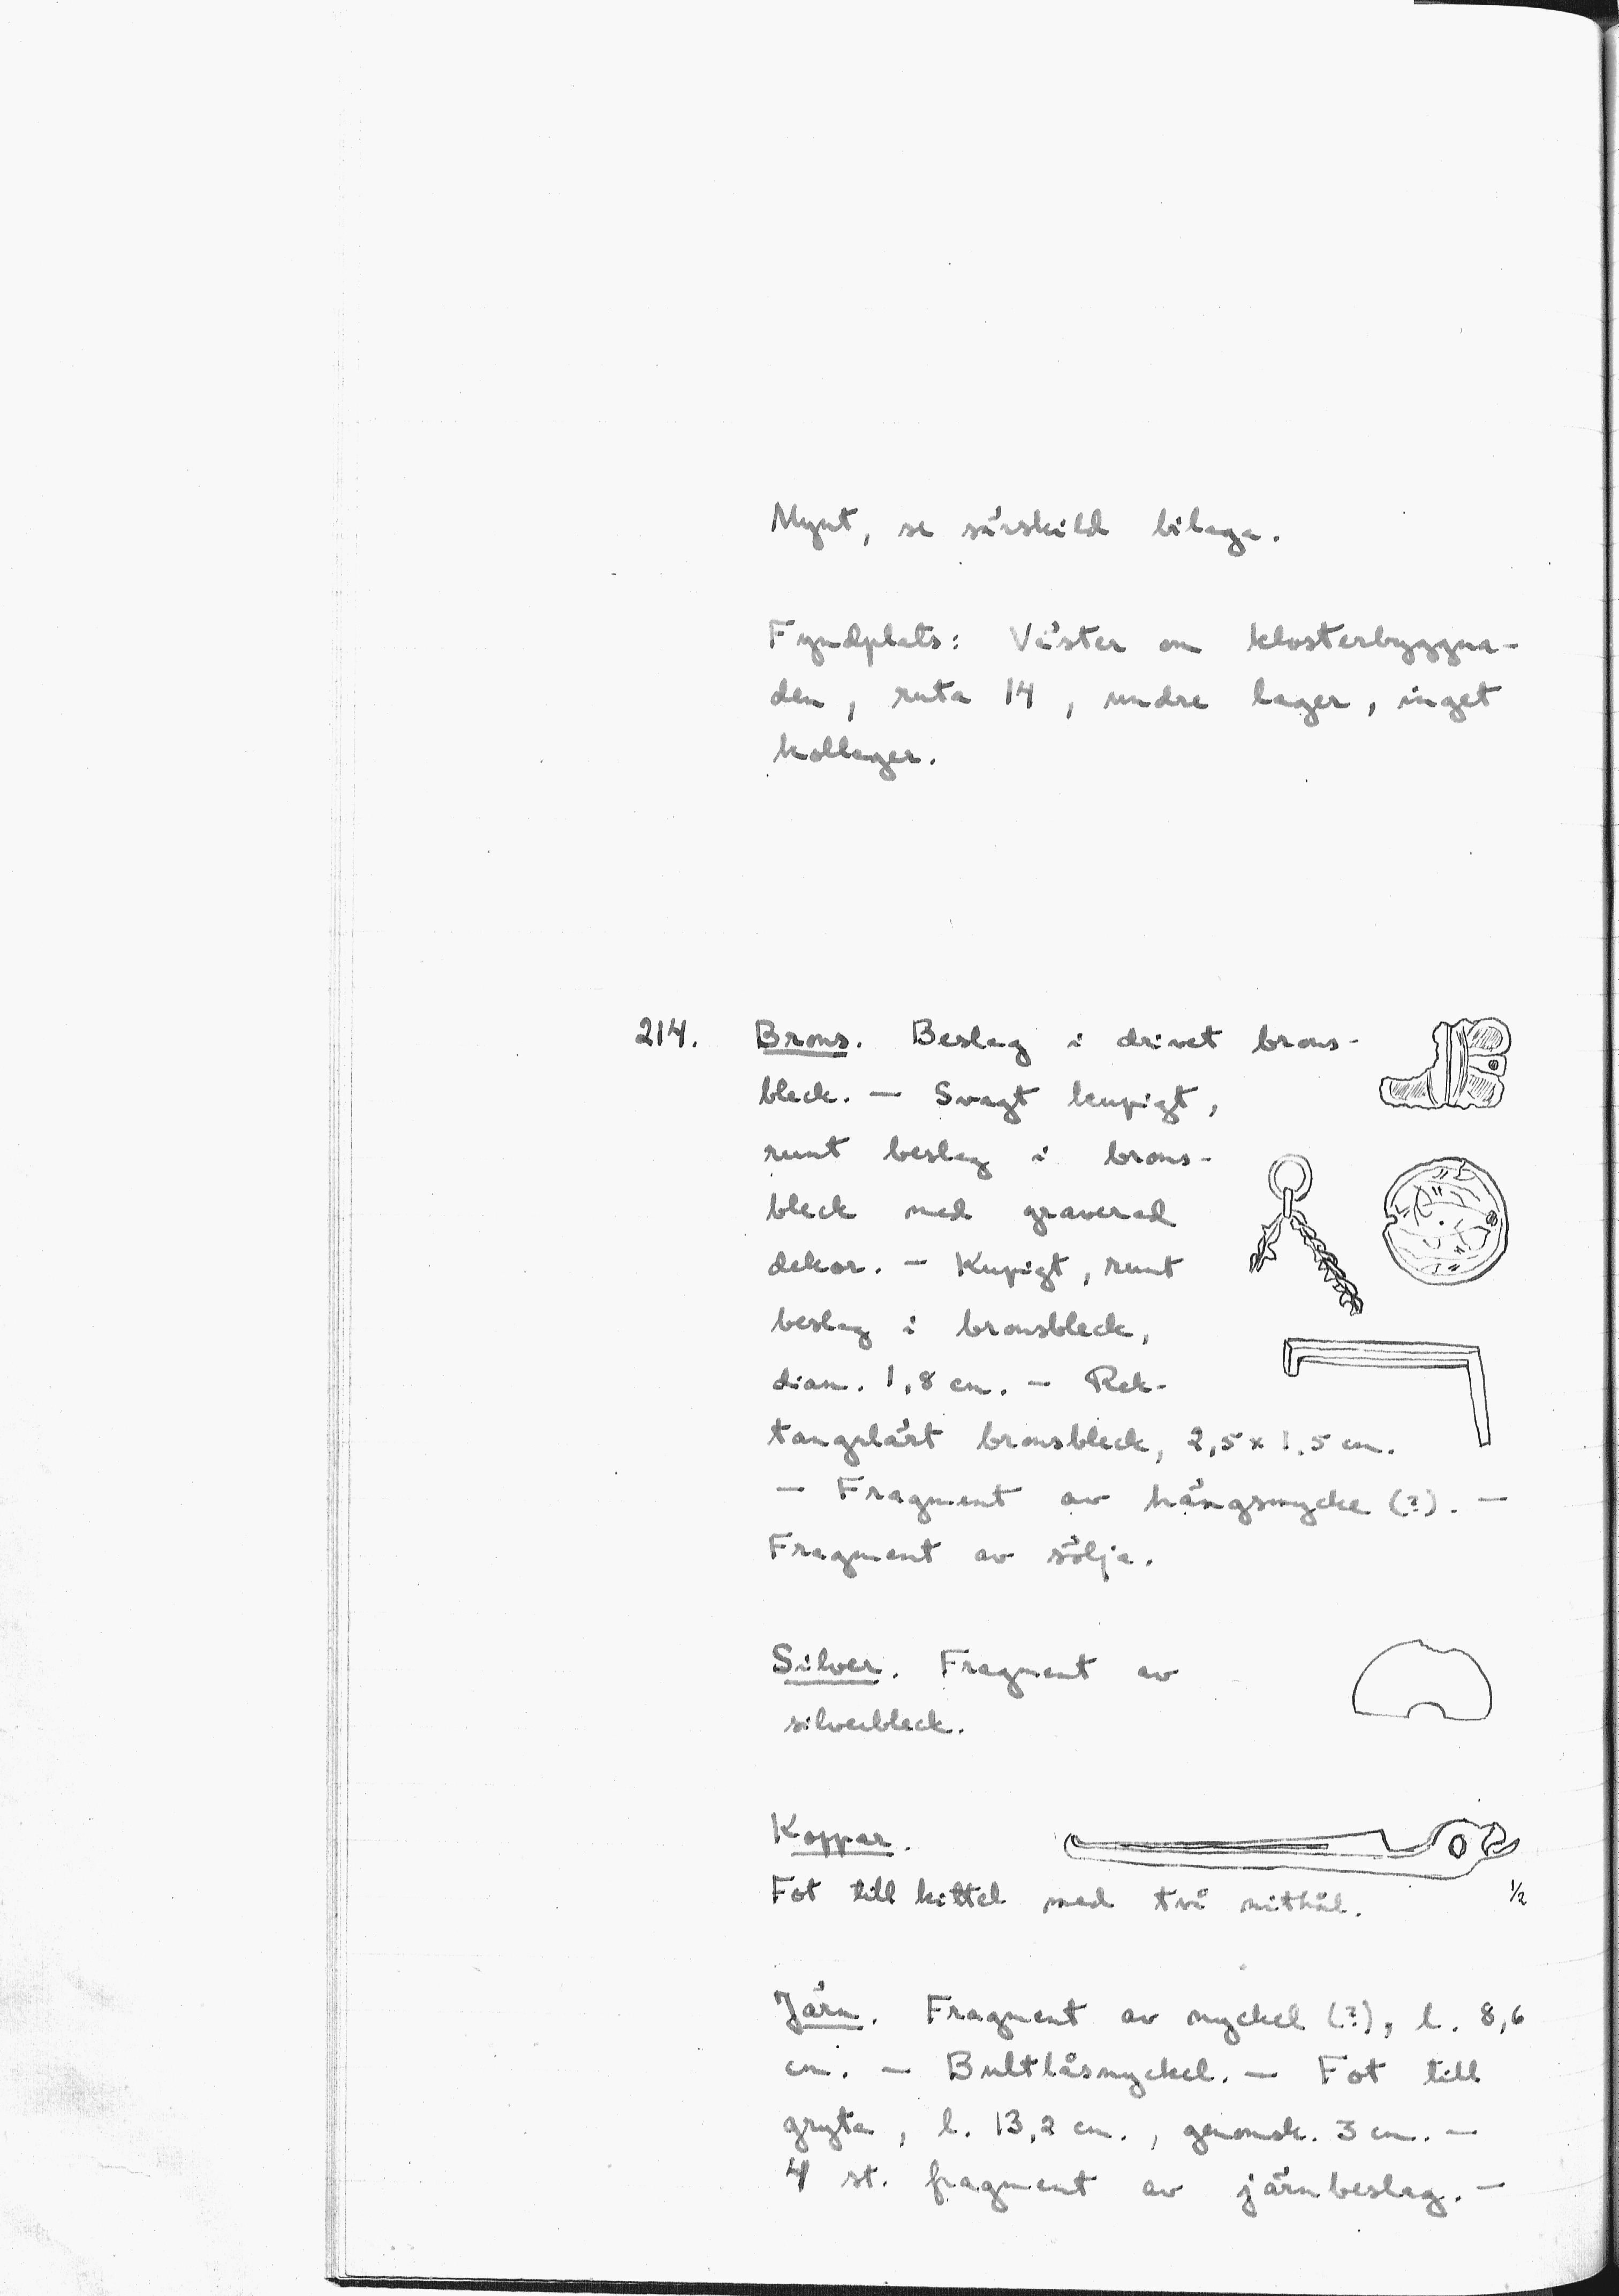 Mynt, se särskild bilaga.
Fyndplats: Väster om klosterbyggna-
den, ruta 14, undre lager, inget
kollager.
214. Brons. Beslag i drivet brons-
bleck. — Svagt kupigt,
runt beslag i brons-
bleck med graverad
dekor. — Kupigt, runt
beslag i bronsbleck,
diam. 1,8 cm. — Rek-
tangulärt bronsbleck, 2,5 x 1,5 cm.
— Fragment av hängsmycke (?). —
Fragment av sölja.
Silver. Fragment av
silverbleck.
Koppar.
Fot till kittel med två nithål.
1/2
Järn. Fragment av nyckel (?), l. 8,6
cm. — Bultlåsnyckel. — Fot till
gryta, l. 13,2 cm., genomsk. 3 cm. —
4 st. fragment av järnbeslag. —